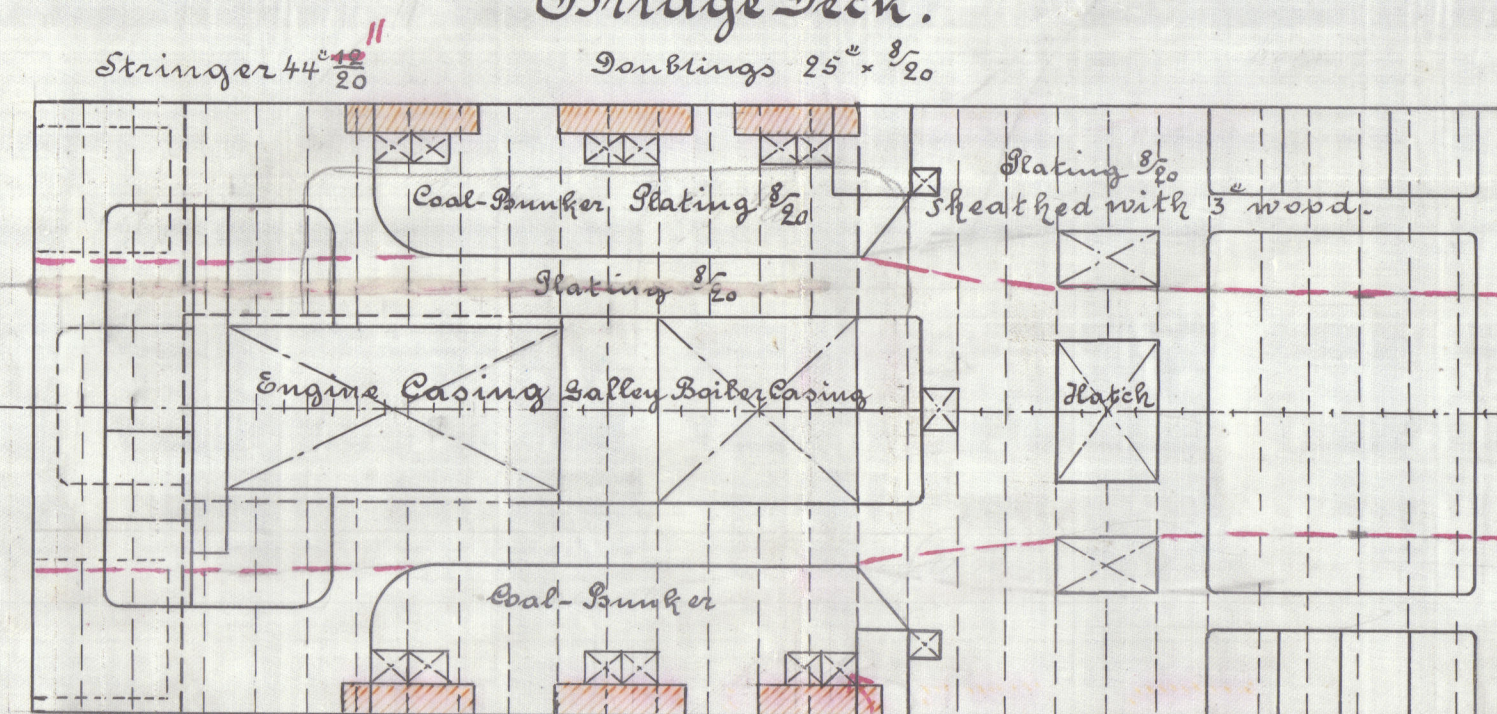 Bridge Deck.
Stringer 44" 12/20 11
Doublings 25" × 8/20
Plating 8/20
sheathed with 3" wood.
Coal-Bunker Plating 8/20
Plating 8/20
Engine Casing Galley Boiler Casing
Hatch
Coal-Bunker